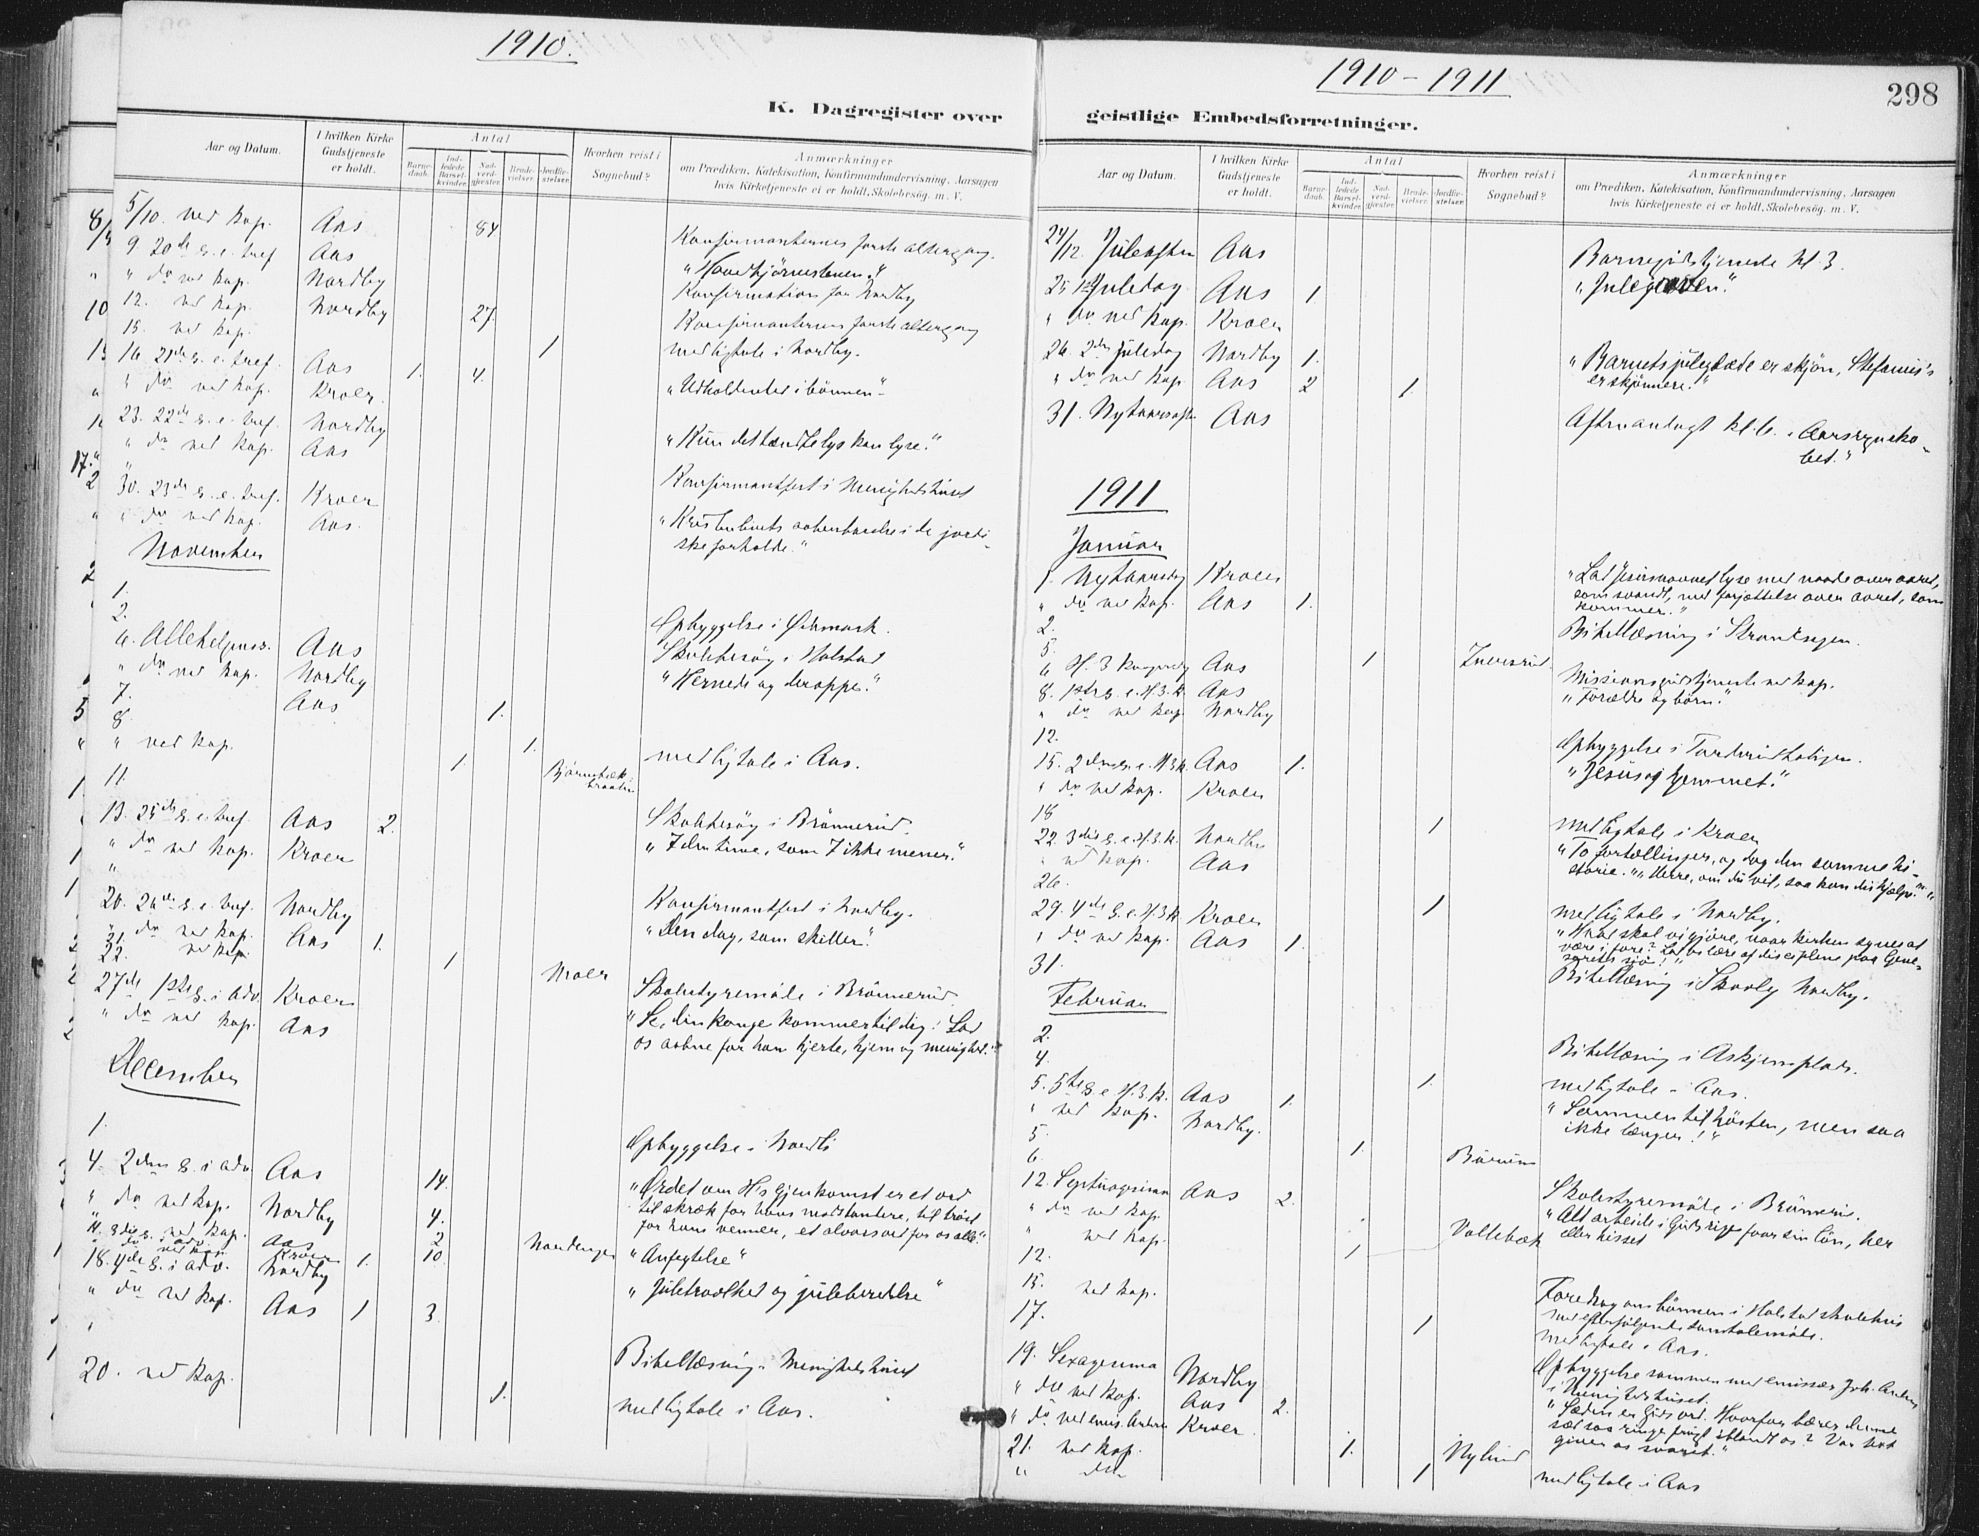 1910.
K. Dagregister over
Aar og Datum.
I hvilken Kirke Gudstjeneste er holdt.
Antal
Barnedaab.
Indledede Barselkvinder.
Nadverdgjester.
Brudevielser.
Jordfæstelser.
Hvorhen reist i Sognebud?
Anmærkninger
om Prædiken, Katekisation, Konfirmandundervisning, Aarsagen
hvis Kirketjeneste ei er holdt, Skolebesøg. m. V.
5/10. ved kap. Aas 84 Konfirmanternes første altergang.
9. 20de s. e. tref Aas "Hovedhjørnestenen."
" do ved kap. Nordby Konfirmation for Nordby
12. ved kap. Nordby 27. Konfirmanternes første altergang
15. ved kap. 1 med ligtale i Nordby.
16. 21de s. e. tref. Aas 1. 4. "Udholdenhet i bønnen."
" do ved kap. Kroer.
23. 22de s. e. tref. Nordby "Kun det tændte lys kan lyse."
" do ved kap. Aas
" Konfirmantfest i Menighedshuset
30. 23de s. e. tref. Kroer "Kristenlivets aabenbarelse i de jordi-
" do ved kap. Aas. ske forholde."
November
1. Opbyggelse i
2. Skolebesøg i Holstad
6. Allehelgens. Aas "Hernede og deroppe."
" do ved kap. Nordby
7. Aas 1.
8. 1. med ligtale i Aas.
" ved kap. 1.
11. Skolebesøg i Brønnerud.
13. 25de s. e. tref. Aas 2. "I den time, som I ikke mener."
" do ved kap. Kroer
" Konfirmantfest i Nordby.
20. 26de s. e. tref. Nordby "Den dag, som skiller."
" do ved kap. Aas 1.
21. ved kap. 1 Moer
22. Skolestyremøte i Brønnerud.
27de 1ste s. i adv. Kroer "Se, din konge kommer til dig! Lad
" do ved kap. Aas os aabne for ham hjerte, hjem og menighet."
December
1. Opbyggelse i Nordli
4. 2den s. i adv. Aas 14. "Ordet om H's gjenkomst er et ord
" do ved kap. Nordby 4. til skræk for hans modstandere, til trøst
" ved kap. Aas 2 for hans venner, et alvorsord for os alle."
11. 3die s. i adv. Kroer 10 "Anfegtelse"
18. 4de s. i adv. Nordby 1. "Juletravlhet og juleberedelse"
" do ved kap. Aas 1 3.
" Bibellæsning i Menighetshuset
20. ved kap. 1. med ligtale i Aas.
1910–1911
298
geistlige Embedsforretninger.
Aar og Datum.
I hvilken Kirke Gudstjeneste er holdt.
Antal
Barnedaab.
Indledede Barselkvinder.
Nadverdgjester.
Brudevielser.
Jordfæstelser.
Hvorhen reist i Sognebud?
Anmærkninger
om Prædiken, Katekisation, Konfirmandundervisning, Aarsagen
hvis Kirketjeneste ei er holdt, Skolebesøg. m. V.
24/12. Juleaften Aas Barnegudstjeneste kl. 3.
25 1ste Juledag Aas 1 "Julegaven."
" do ved kap. Kroer
26. 2den Juledag Nordby 1. "Barnets juleglæde er skjøn, Stefanus's
" do ved kap. Aas 2 1. er skjønnere."
31. Nytaarsaften Aas Aftensangt kl. 6.
1911
Januar
1. Nytaarsdag Kroer "Lad Jesusnavnet lyse med naade over aaret,
" do ved kap. Aas 1. som svandt, med forjættelse over aaret, som
kommer."
2. Bibellæsning i
5. 1
6 H. 3 kongersdg Aas Missionsgudstjeneste ved kap.
8. 1ste s. e. H. 3. k. Aas "Forældre og børn."
" do ved kap. Nordby
12. Opbyggelse i
15. 2den s. e. H 3 k. Aas 1. "Jesus og hjemmet."
" do ved kap. Kroer
18 1 med ligtale i Kroer
22. 3die s. e. H. 3. k. Nordby "To fortællinger, og dog den samme hi-
" ved kap. Aas storie." "Herre, om du vil, saa kan du hjælpe."
26. 1 med ligtale i Nordby.
29. 4de s. e. H 3 k Kroer "Hvad skal vi gjøre, naar kirken synes at
" do ved kap. Aas 1. være i fare? Lad os lære af disciplene paa Gene-
sarets sjø!"
31. Bibellæsning i Skovly Nordby.
Februar
2. Bibellæsning i Askjemsplads.
4. 1. med ligtale i Aas.
5. 5te s. e. H. 3. k. Aas 1. "Sammen til høsten, men saa
" ved kap. Nordby. ikke længer!"
5. 1.
6. Skolestyremøte i Brønnerud.
12. Septuagesima Aas 2. "Alt arbeide i Guds rige faar sin løn, her
" do ved kap. eller hisset
" ved kap. 1 Vollebæk
12.
15. ved kap. Foredrag om bønnen i Holstad skolehus
med efterfølgende samtalemøte.
17. 1 med ligtale i Aas.
Opbyggelse sammen med emissær Joh.
i Menighedshuset.
19. Sexagesima Nordby "Sæden er Guds ord. Hvorfor bærer denne
" do ved kap. Aas 2. sæd saa ringe frugt iblandt os? Vor text
" do ved emis. Kroer. giver os svaret."
21. ved kap. 1.
" do 1 med ligtale i Aas